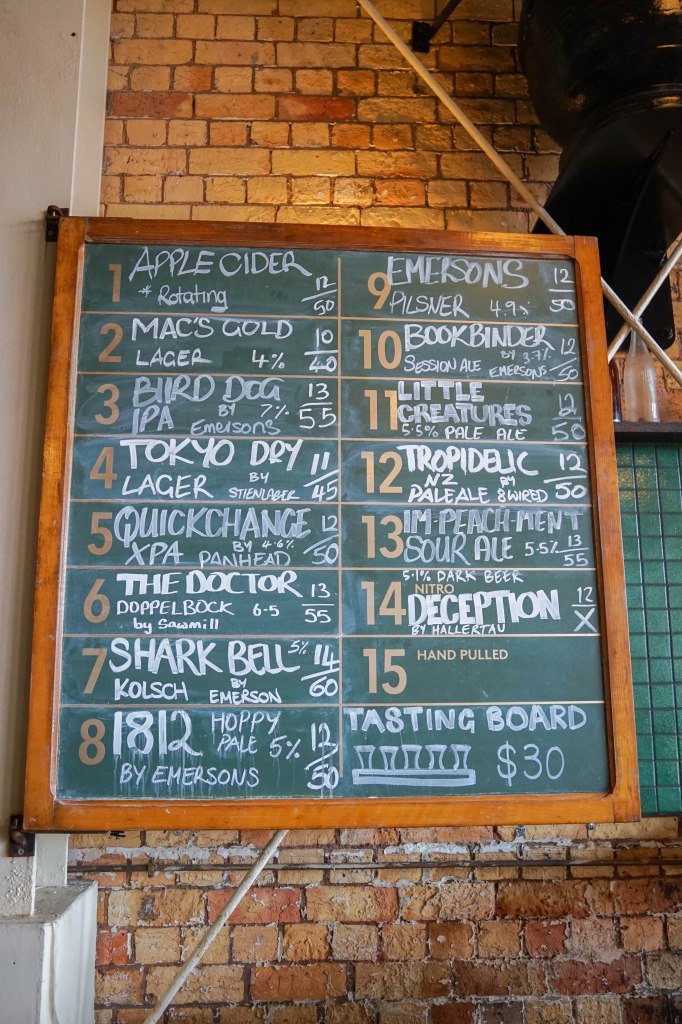 1 APPLE CIDER
* Rotating 12/50
2 MAC'S GOLD 10/40
LAGER 4%
3 BIIRD DOG 13/55
IPA BY 7%
EMERSONS
4 TOKYO DRY 11/45
LAGER BY
STIENLAGER
5 QUICKCHANGE 12/50
XPA BY 4.6%
PANHEAD
6 THE DOCTOR 13/55
DOPPELBOCK 6.5
by Sawmill
7 SHARK BELL 5% 14/60
KOLSCH BY
EMERSON
8 1812 HOPPY
PALE 5% 12/50
BY EMERSONS
9 EMERSONS 12/50
PILSNER 4.9%
10 BOOKBINDER 12/50
SESSION ALE BY 3.7%
EMERSONS
11 LITTLE
CREATURES 12/50
5.5% PALE ALE
12 TROPIDELIC 12/50
NZ BY
PALE ALE 8 WIRED
13 IM-PEACH-MENT
SOUR ALE 5.5% 13/55
5.1% DARK BEER
14 NITRO
DECEPTION 12/X
BY HALLERTAU
15 HAND PULLED
TASTING BOARD
$30